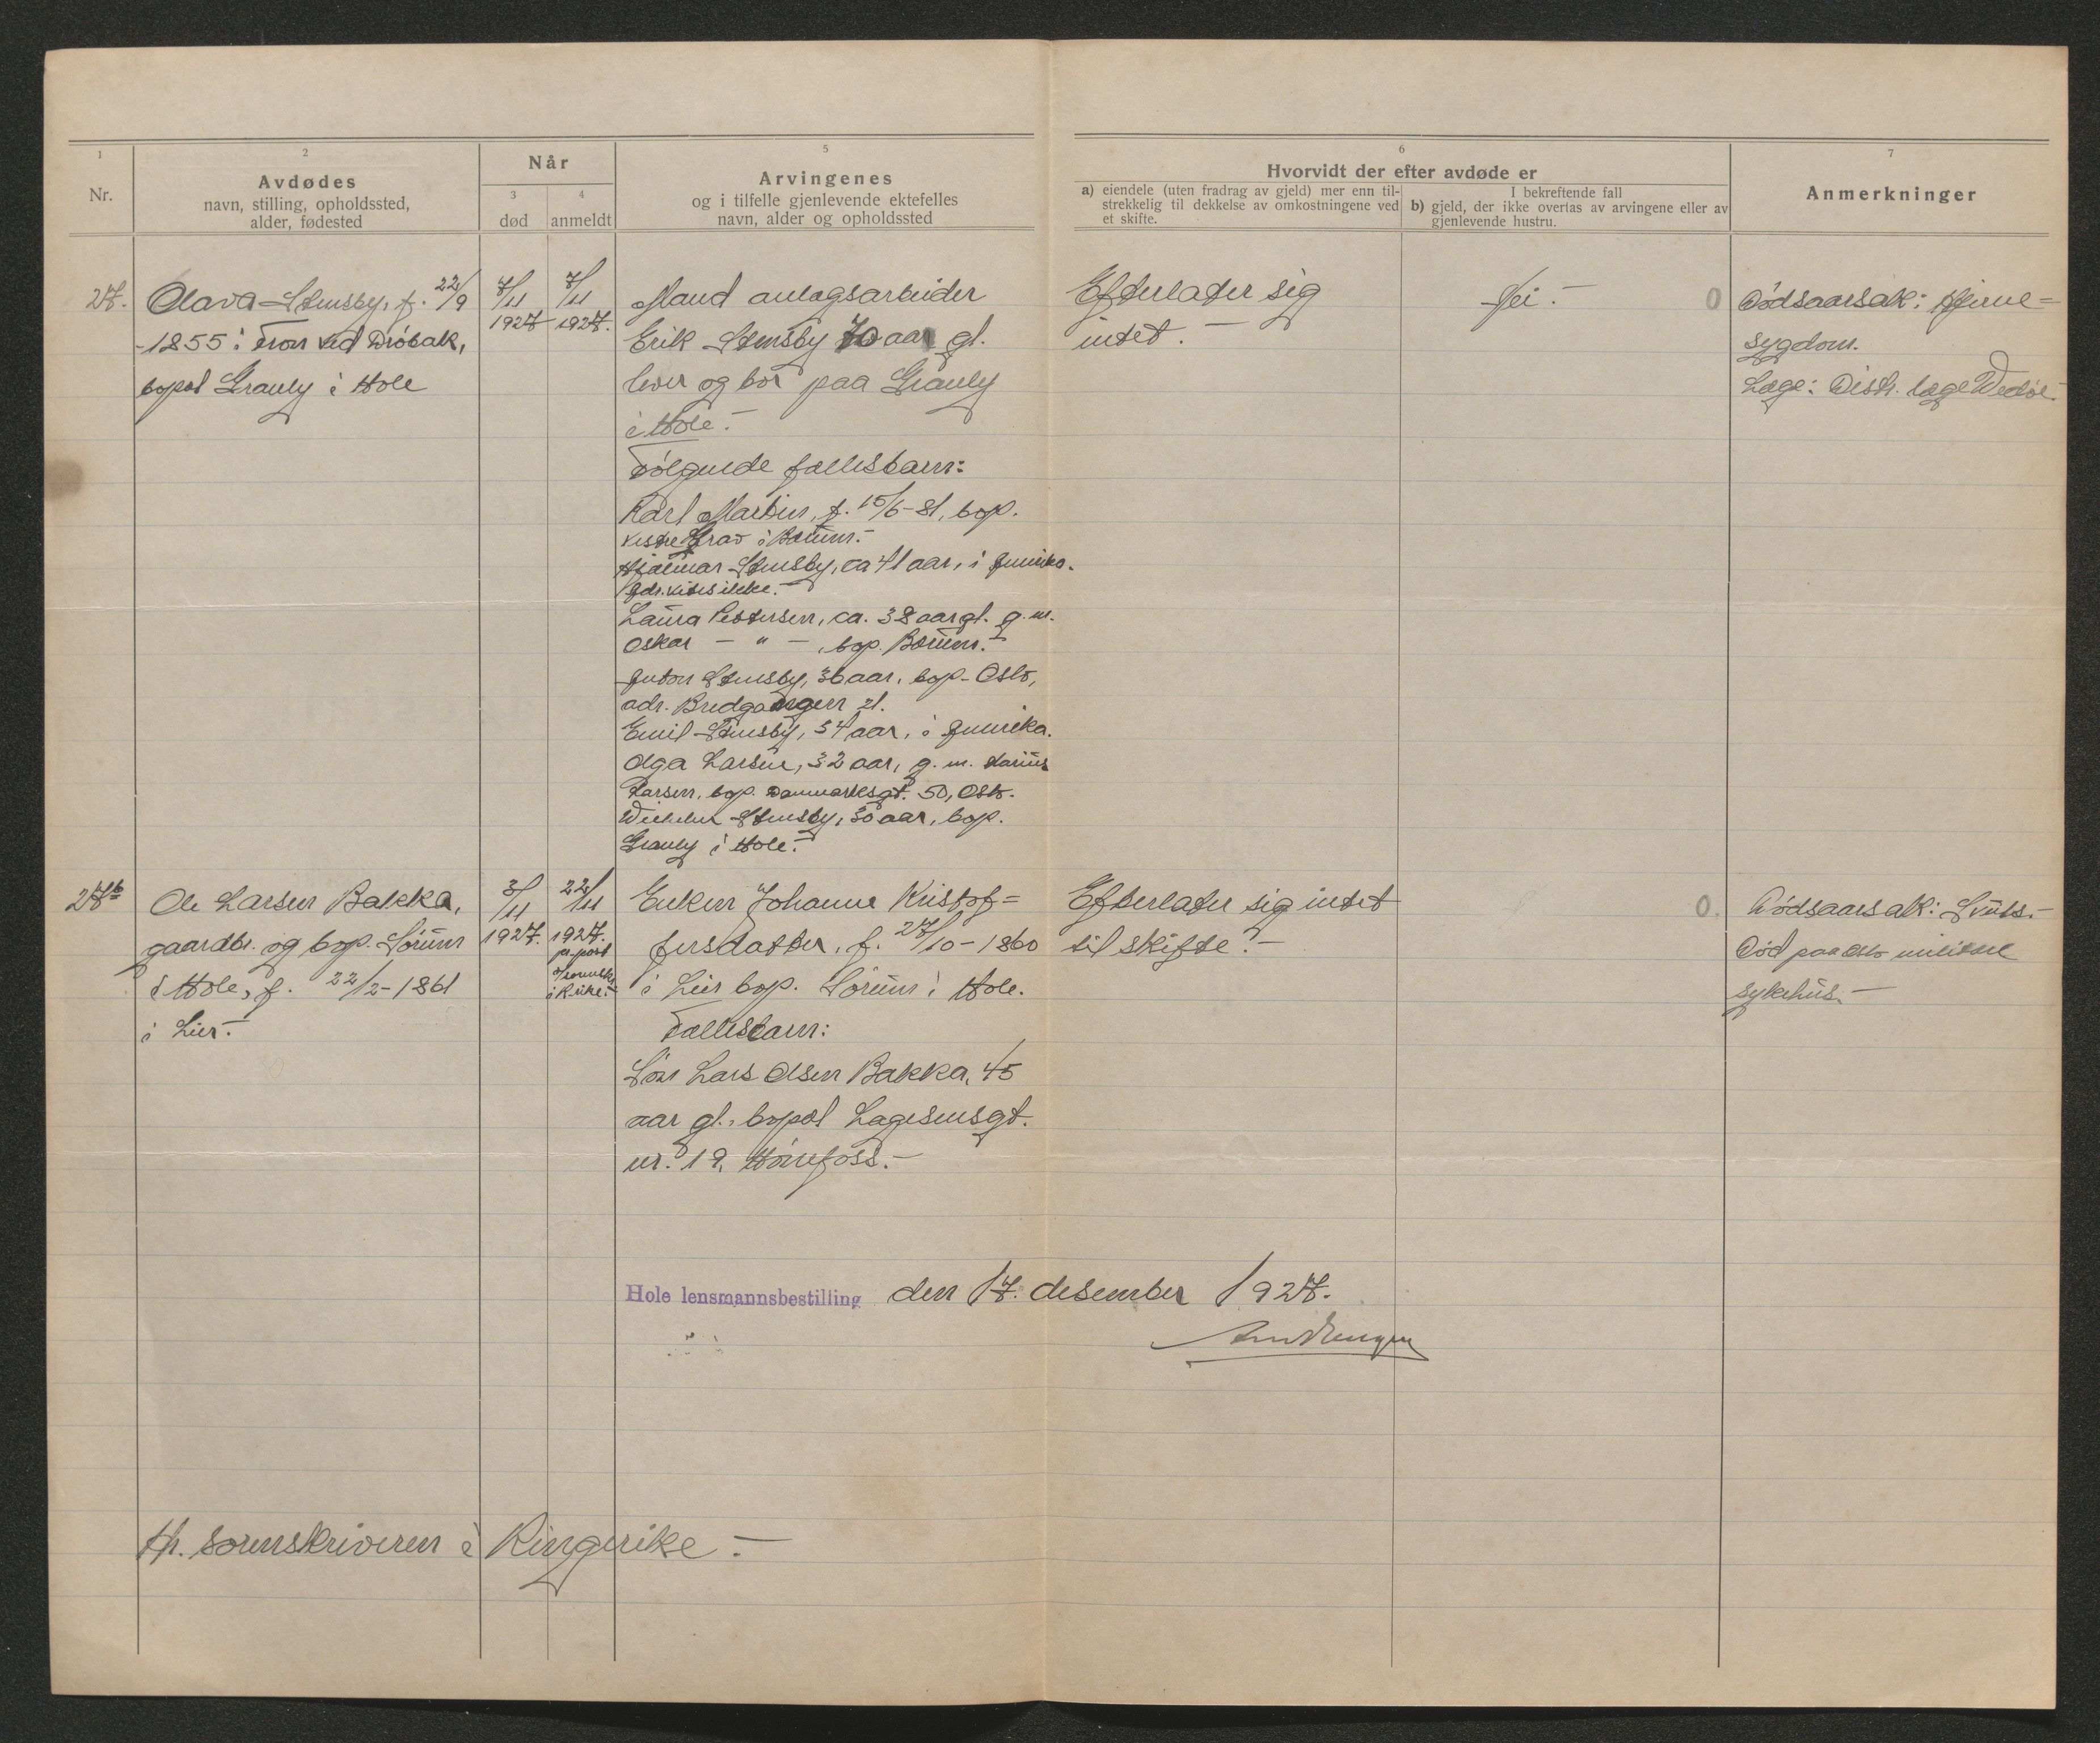 1
2
Når
5
6
7
Nr.
Avdødes
navn, stilling, opholdssted,
alder, fødested
3
død
4
anmeldt
Arvingenes
og i tilfelle gjenlevende ektefelles
navn, alder og opholdssted
Hvorvidt der efter avdøde er
a) eiendele (uten fradrag av gjeld) mer enn til-
strekkelig til dekkelse av omkostningene ved
et skifte.
I bekreftende fall
b) gjeld, der ikke overtas av arvingene eller av
gjenlevende hustru.
Anmerkninger
27.
Olava Stensby, f. 22/9
-1855 i Fron ved Drøbak,
bopæl Granly i Hole
7/11
1927
7/11
1927.
Mand anlægsarbeider
Erik Stensby 70 aar gl.
lever og bor paa Granly
i Hole.-
Følgende fællesbarn:
Karl Martin, f. 15/6-81, bop.
vestre i Bærum.-
Hjalmar Stensby, ca 41 aar, i Amerika.
adr. vites ikke.-
Laura Pettersen, ca. 38 aar gl. g.m.
Oskar - " - , bop. Bærum.-
Anton Stensby, 36 aar, bop. Oslo,
adr. Bredgangen 21.
Emil Stensby, 34 aar, i Amerika.
Olga Larsen, 32 aar, g. m.
Larsen, bop. Danmarksgt. 50, Oslo.
Wilhelm Stensby, 30 aar, bop.
Granly i Hole.-
Efterlater sig
intet.-
Nei.-
0
Dødsaarsak: Hjerne=
sygdom.
Læge: Distr. læge Wedøe.
27b
Ole Larsen Bakka,
gaardbr. og bop. Sørum
i Hole, f. 22/2-1861
i Lier.-
3/11
1927.
22/11
1927.
pr. post
i R.rike.-
Enken Johanne Kristof=
fersdatter, f. 27/10-1860
i Lier bop. Sørum i Hole.
Fællesbarn:
Søn Lars Olsen Bakka, 45
aar gl., bopæl Lagesensgt.
nr. 19, Hønefoss.-
Efterlater sig intet
til skifte.-
0.
Dødsaarsak:
Død paa Oslo militære
sykehus.-
Hole lensmannsbestilling den 17. desember 1927.
Hr. sorenskriveren i Ringerike.-